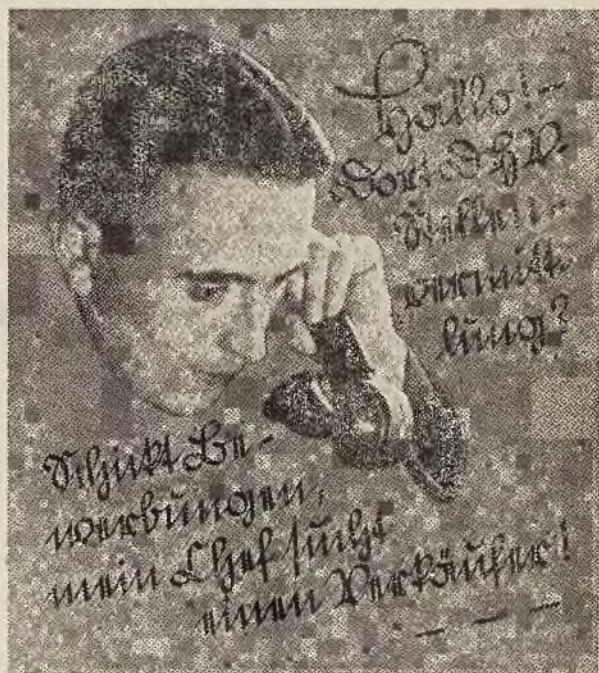 Hallo! –
Dort D.H.V.
Stellen-
vermitt-
lung?
Schickt Be-
werbungen,
mein Chef sucht
einen Verkäufer!
– – –